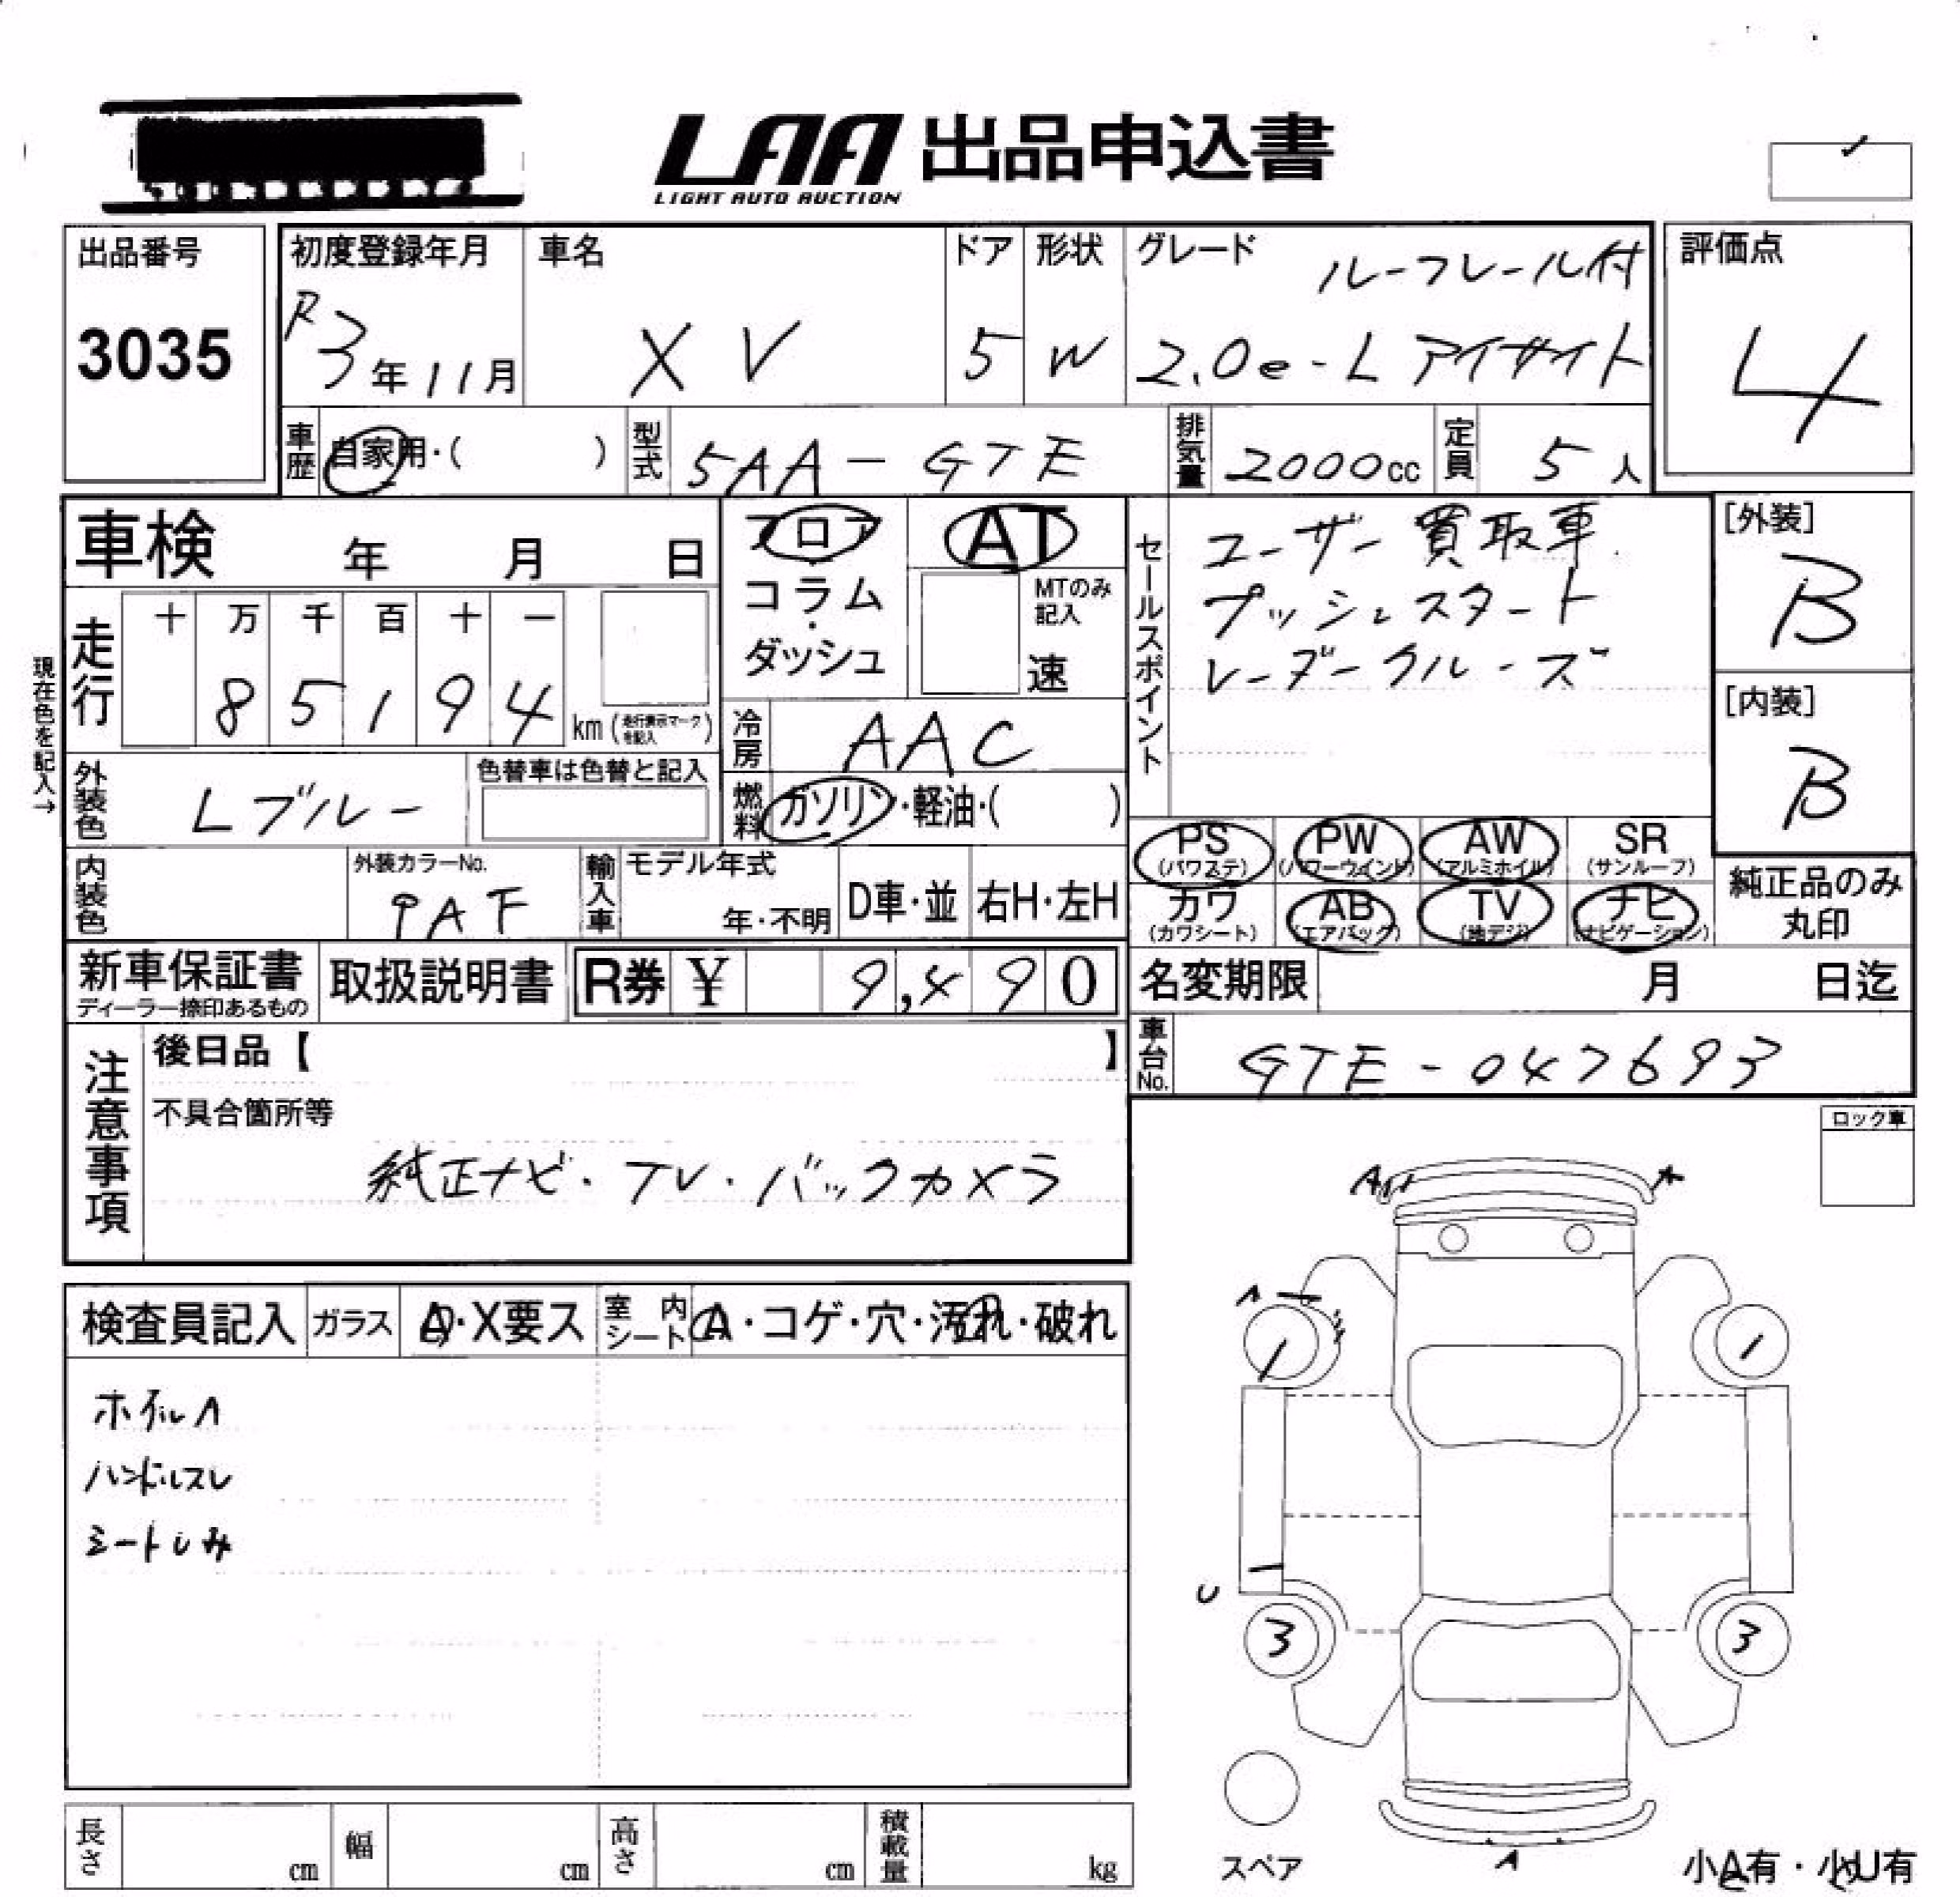 LAA 出品申込書
LIGHT AUTO AUCTION
出品番号
3035
初度登録年月
R3年11月
車名
XV
ドア
5
形状
W
グレード
ルーフレール付
2.0e-L アイサイト
評価点
4
車歴
自家用・( )
型式
5AA-GTE
排気量
2000cc
定員
5人
車検 年 月 日
フロア
・
コラム
・
ダッシュ
AT
MTのみ
記入
速
セールスポイント
ユーザー買取車
プッシュスタート
レーダークルーズ
[外装]
B
[内装]
B
現在色を記入→
走行
十 万 千 百 十 一
8 5 1 9 4
km (走行表示マークを記入)
冷房
AAC
外装色
Lブルー
色替車は色替と記入
燃料
ガソリン・軽油・( )
PS
(パワステ)
PW
(パワーウインド)
AW
(アルミホイル)
SR
(サンルーフ)
カワ
(カワシート)
AB
(エアバック)
TV
(地デジ)
ナビ
(ナビゲーション)
純正品のみ
丸印
内装色
外装カラーNo.
PAF
輸入車
モデル年式
年・不明
D車・並
右H・左H
新車保証書
ディーラー捺印あるもの
取扱説明書
R券 ¥ 9,490
名変期限 月 日迄
車台No.
GTE-047693
注意事項
後日品【 】
不具合箇所等
純正ナビ・TV・バックカメラ
ロック車
検査員記入
ガラス
A・X要ス
室内
シート
A・コゲ・穴・汚れ・破れ
ホイルA
ハンドルスレ
シートしみ
A
A
A
1
1
U
3
3
A
スペア
小A有・小U有
長さ
cm
幅
cm
高さ
cm
積載量
kg